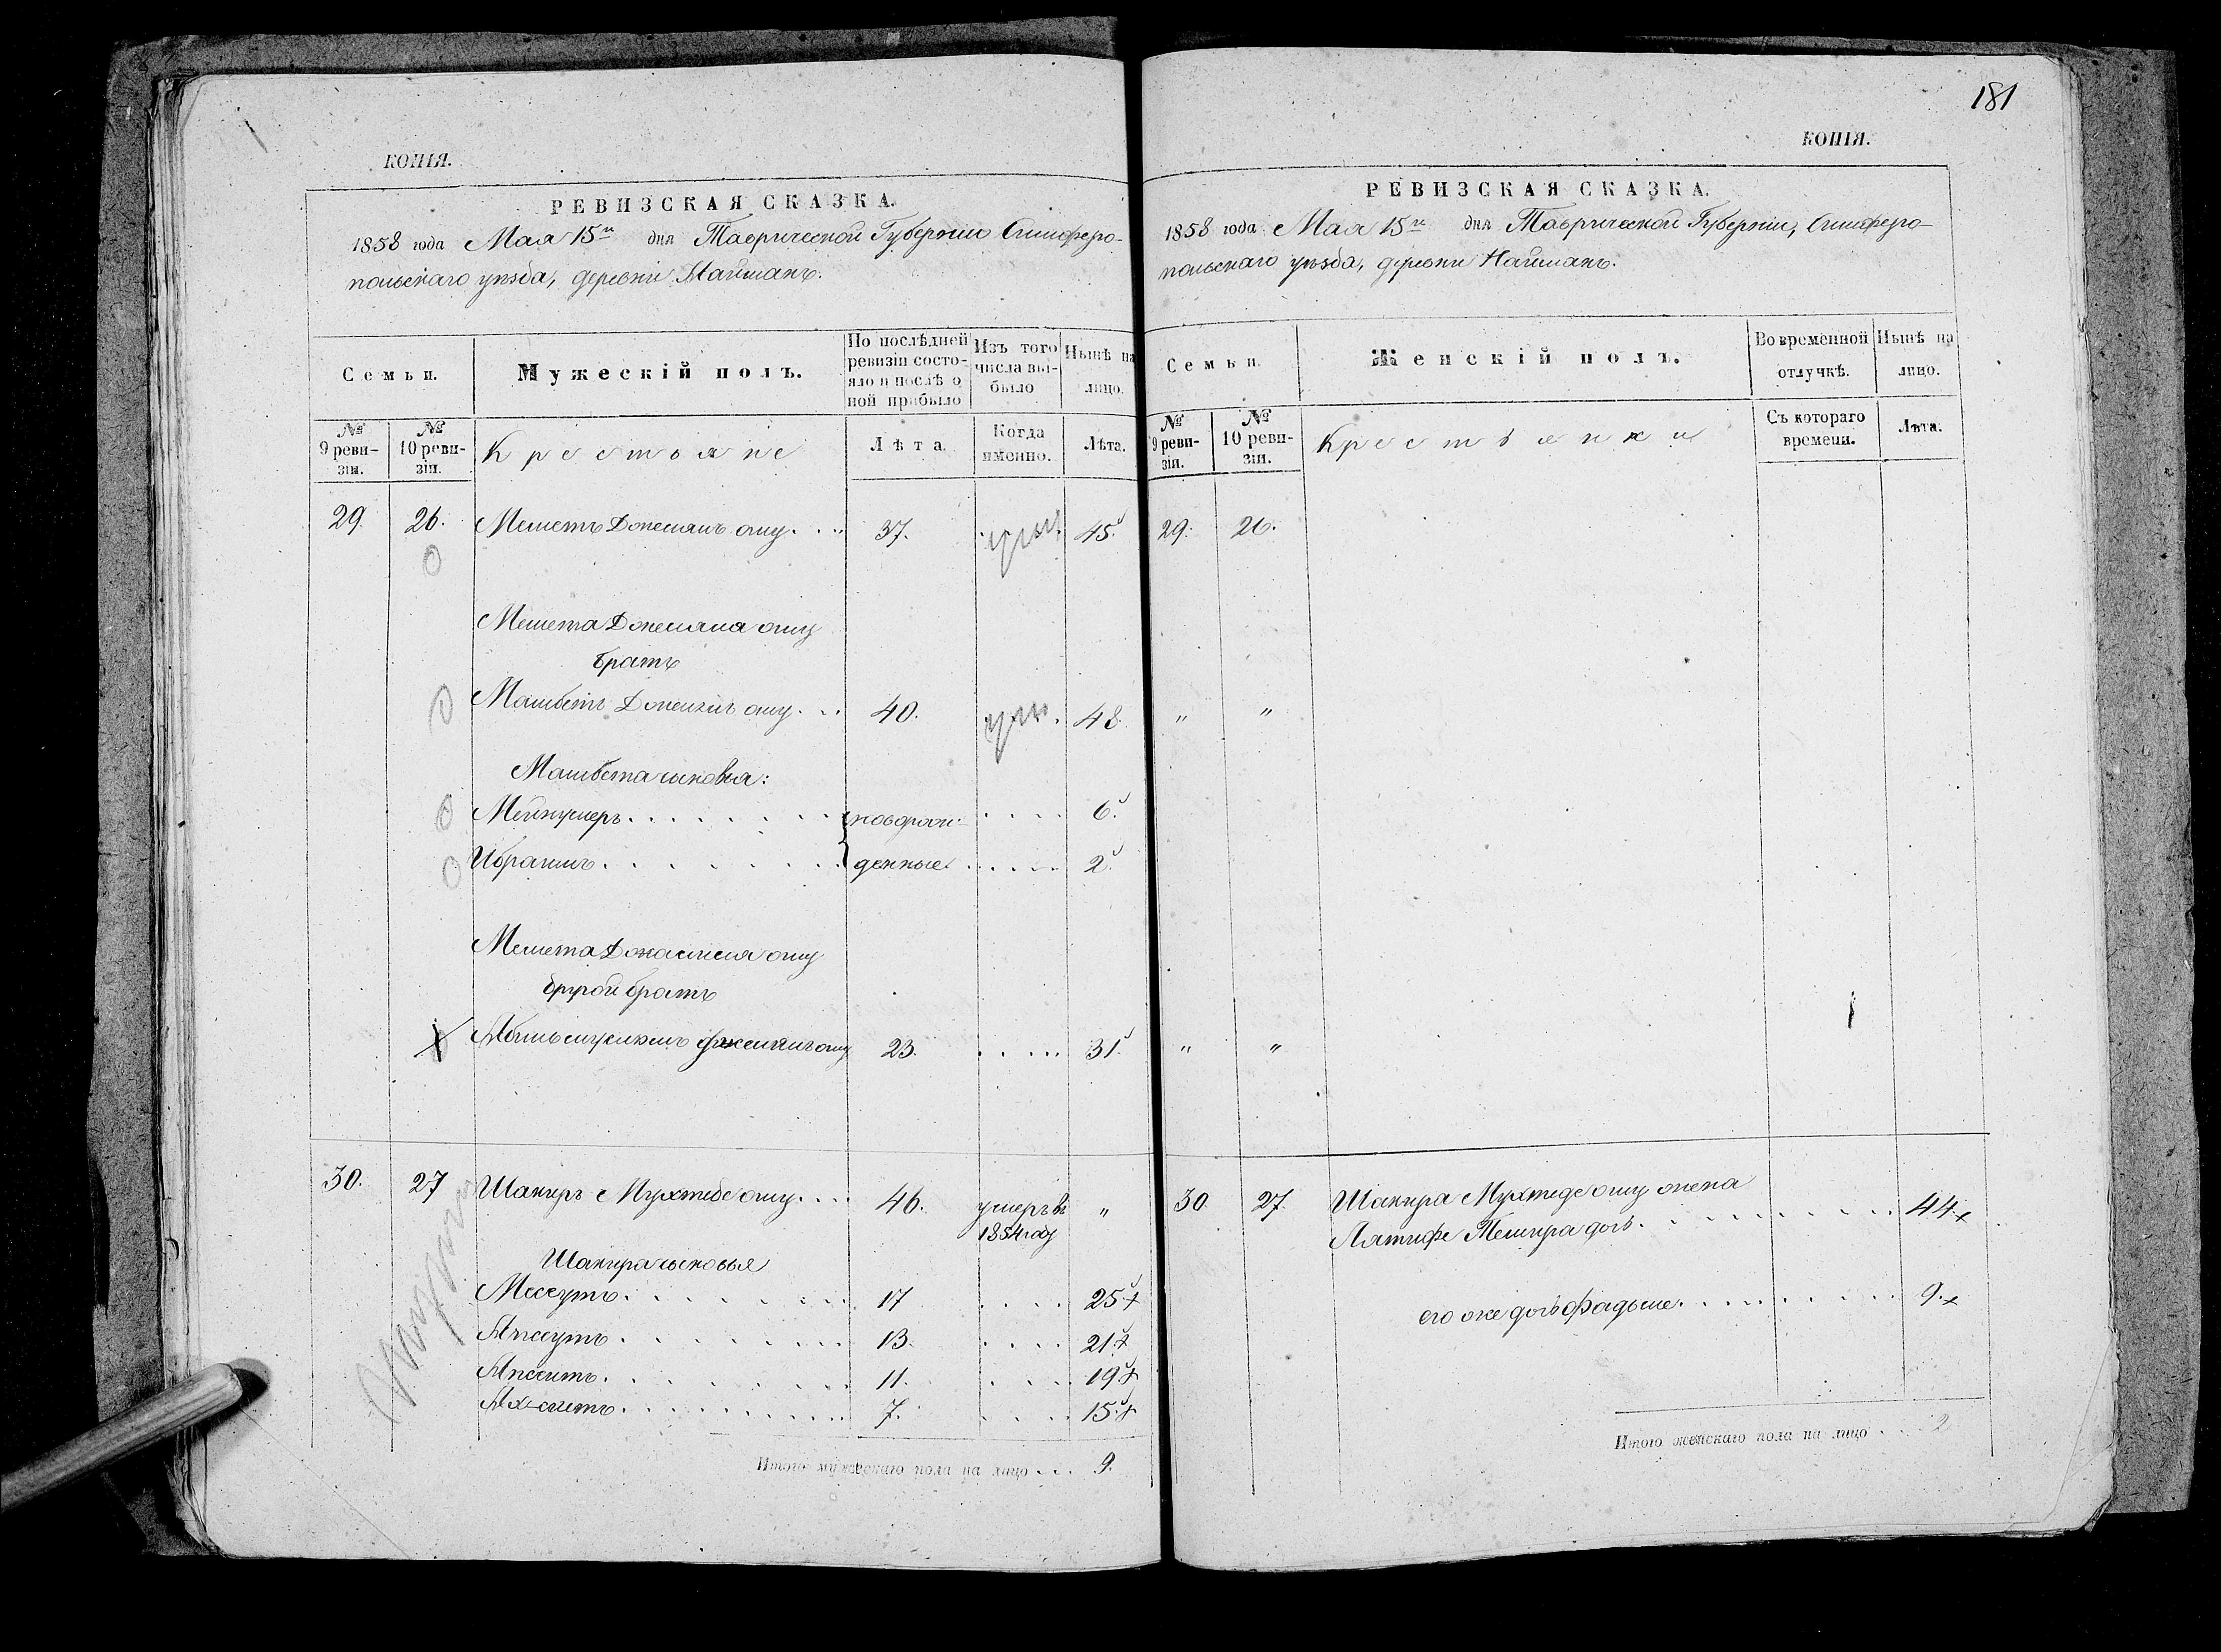 КОПІЯ.
РЕВИЗСКАЯ СКАЗКА.
1858 года Мая 15го дня Таврической Губерніи Симферо-
польскаго уѣзда, деревни Найманъ.
Семьи.
Мужескій полъ.
По послѣдней ревизіи состо-
яло и послѣ о
ной прибыло
Изъ того
числа вы-
было
Нынѣ на
лицо.
№
9 реви-
зіи.
№
10 реви-
зіи.
Крестьяне
Лѣта.
Когда
именно.
Лѣта.
29. 26. Меметъ Джемиль оглу. 37. ум. 45.
Мемета Джемиля оглу
братъ
Мамбетъ Джемиль оглу. 40. ум. 48.
Мамбета сыновья:
Ибрагимъ новорож-
денные 6.
2.
Мемета Джемиля оглу
другой братъ
23. 31.
30. 27 Шакиръ Мухтеде оглу. 46. умеръ въ "
1854 году
Шакира сыновья
Месеутъ. 17 25
Апсеутъ. 13. 21
Апсеитъ. 11. 19
7. 15
Итого мужескаго пола на лицо ... 9.
181
КОПІЯ.
РЕВИЗСКАЯ СКАЗКА.
1858 года Мая 15го дня Таврической Губерніи, Симферо-
польскаго уѣзда, деревни Найманъ.
Семьи.
Женскій полъ.
Во временной
отлучкѣ.
Нынѣ на
лицо.
№
9 реви-
зіи.
№
10 реви-
зіи.
Крестьянки
Съ котораго
времени.
Лѣта.
29. 26.
" "
" "
30. 27. Шакира Мухтеде оглу жена
Лятифе Темира дочь. 44
его же дочь Фадьме. 9.
Итого женскаго пола на лицо . . 2